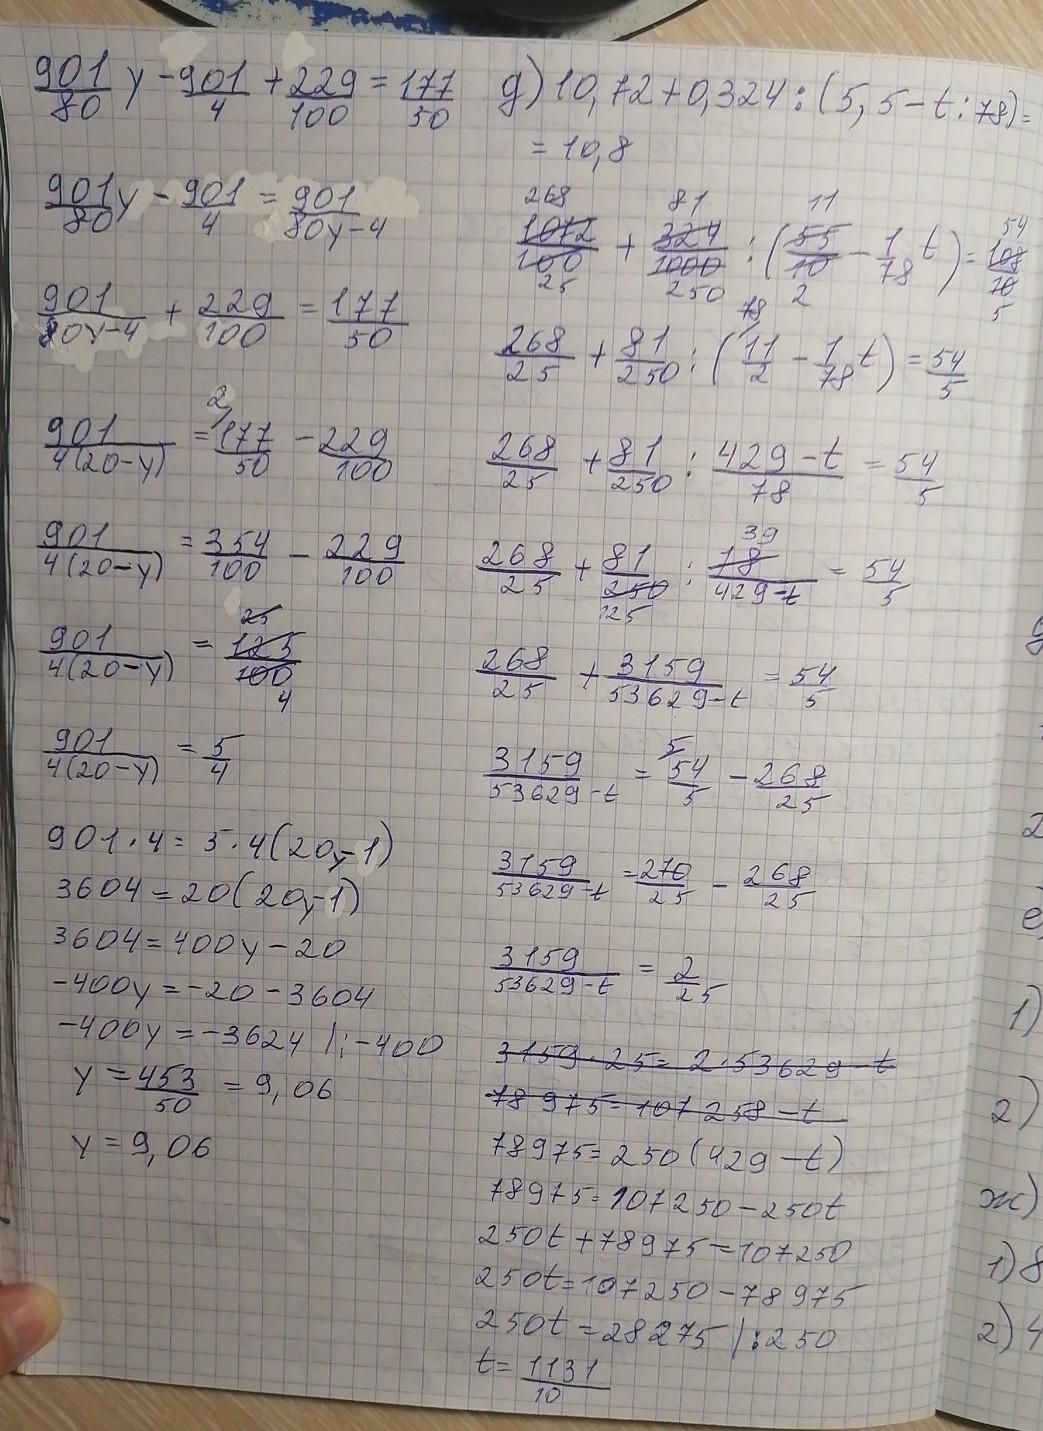 901/80 y - 901/4 + 229/100 = 177/50
901/80 y - 901/4 = 901/80y-4
901/80y-4 + 229/100 = 177/50
901/4(20-y) = 2/ 177/50 - 229/100
901/4(20-y) = 354/100 - 229/100
901/4(20-y) = 125/100 25 4
901/4(20-y) = 5/4
901·4 = 5·4(20y-1)
3604=20(20y-1)
3604=400y-20
-400y=-20-3604
-400y=-3624 |:-400
y = 453/50 = 9,06
y = 9,06
g) 10,72+0,324:(5,5-t:78)=
= 10,8
268 81 11 54
1072/100 + 324/1000 : (55/10 - 1/78 t) = 108/10
25 250 2 5
268/25 + 81/250 : (78/ 11/2 - 1/78 t) = 54/5
268/25 + 81/250 : 429-t/78 = 54/5
39
268/25 + 81/250 : 78/429-t = 54/5
125
268/25 + 3159/53629-t = 54/5
3159/53629-t = 5/ 54/5 - 268/25
3159/53629-t = 270/25 - 268/25
3159/53629-t = 2/25
3159·25=2·53629-t
78975=107258-t
78975=250(429-t)
78975=107250-250t
250t+78975=107250
250t=107250-78975
250t=28275 |:250
t= 1131/10
2
e
1)
2)
ж)
1) 8
2) 4